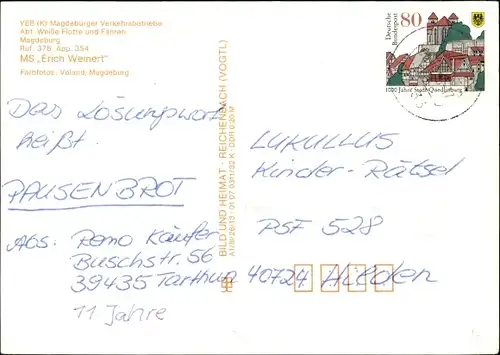 VEB (K) Magdeburger Verkehrsbetriebe
Abt. Weiße Flotte und Fähren
Magdeburg
Ruf: 378, App. 354
MS „Erich Weinert"
Farbfotos: Voland, Magdeburg
Das Lösungswort
heißt.
PAUSENBROT
Abs: Remo Käufer
Buschstr. 56
39435 Tarthun
11 Jahre
BILD UND HEIMAT · REICHENBACH (VOGTL)
Deutsche Bundespost
80
1000 Jahre Stadt Quedlinburg
LUKULLUS
Kinder-Rätsel
PSF 528
40724 Hilden